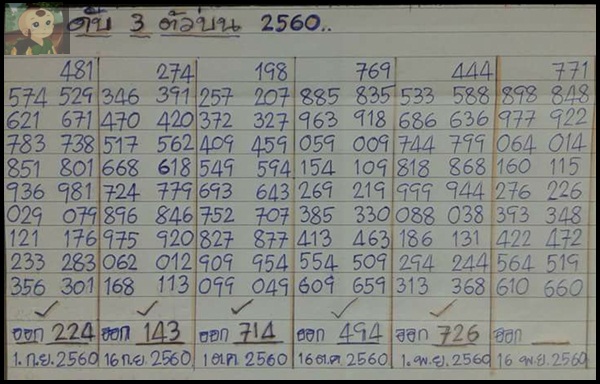 ดับ 3 ตัวบน 2560..
481 274 198 769 444 771
574 529 346 391 257 207 885 835 533 588 898 848
621 671 470 420 372 327 963 918 686 636 977 922
783 738 517 562 409 459 059 009 744 799 064 014
851 801 668 618 549 594 154 109 818 868 160 115
936 981 724 779 693 643 269 219 999 944 276 226
029 079 896 846 752 707 385 330 088 038 393 348
121 176 975 920 827 877 413 463 186 131 422 472
233 283 062 012 909 954 554 509 294 244 564 519
356 301 168 113 099 049 609 659 313 368 610 660
ออก 224 ออก 143 ออก 714 ออก 494 ออก 726 ออก
1.ก.ย.2560 16 ก.ย.2560 1 ต.ค 2560 16 ต.ค 2560 1.พ.ย.2560 16 พ.ย.2560